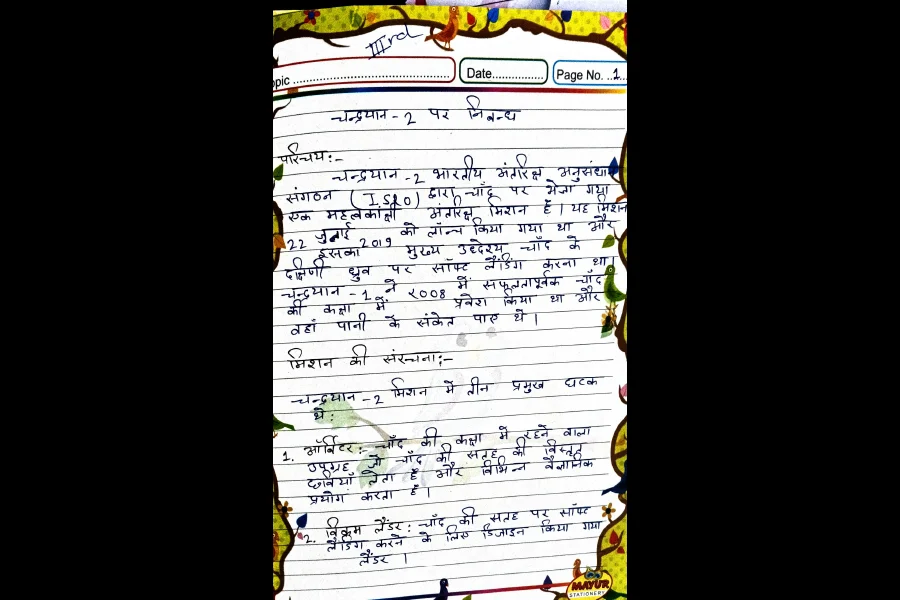 IIIrd
opic
Date
Page No. 1
चन्द्रयान - 2 पर निबन्ध
परिचय:-
चन्द्रयान - 2 भारतीय अंतरिक्ष अनुसंधान
संगठन ( ISRO ) द्वारा चाँद पर भेजा गया
एक महत्वकांक्षी अंतरिक्ष मिशन है । यह मिशन
22 जुलाई को लॉन्च किया गया था और
इसका 2019 मुख्य उद्देश्य चाँद के
दक्षिणी ध्रुव पर सॉफ्ट लैंडिंग करना था।
चन्द्रयान - 1 ने २००8 में सफलतापूर्वक चाँद
की कक्षा में प्रवेश किया था और
वहाँ पानी के संकेत पाए थे ।
मिशन की संरचना:-
चन्द्रयान - 2 मिशन में तीन प्रमुख घटक
थे:
1. ऑर्बिटर: चाँद की कक्षा में रहने वाला
उपग्रह जो चाँद की सतह की विस्तृत
छवियाँ लेता है और विभिन्न वैज्ञानिक
प्रयोग करता है ।
2. विक्रम लैंडर: चाँद की सतह पर सॉफ्ट
लैंडिंग करने के लिए डिजाइन किया गया
लैंडर ।
MAYUR
STATIONERY